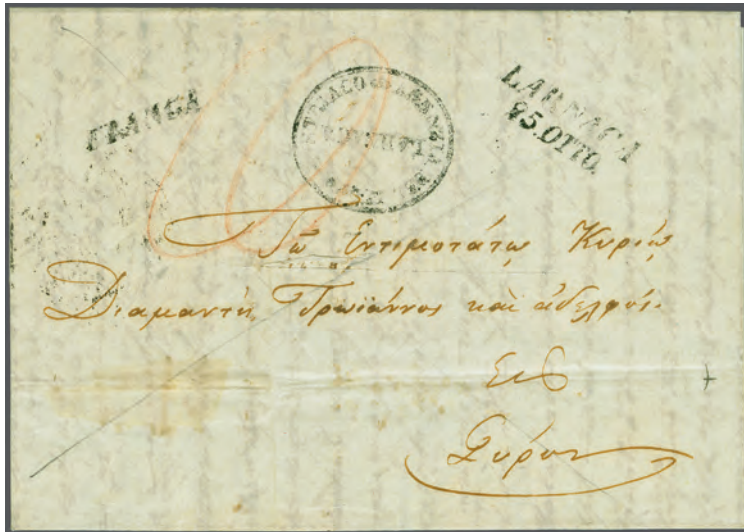 FRANCA
LARNACA
25.OTTO.
Τῷ Ἐντιμοτάτῳ Κυρίῳ
Διαμαντῆ Τρωϊάννος καὶ ἀδελφός.
Εἰς
Σύρον